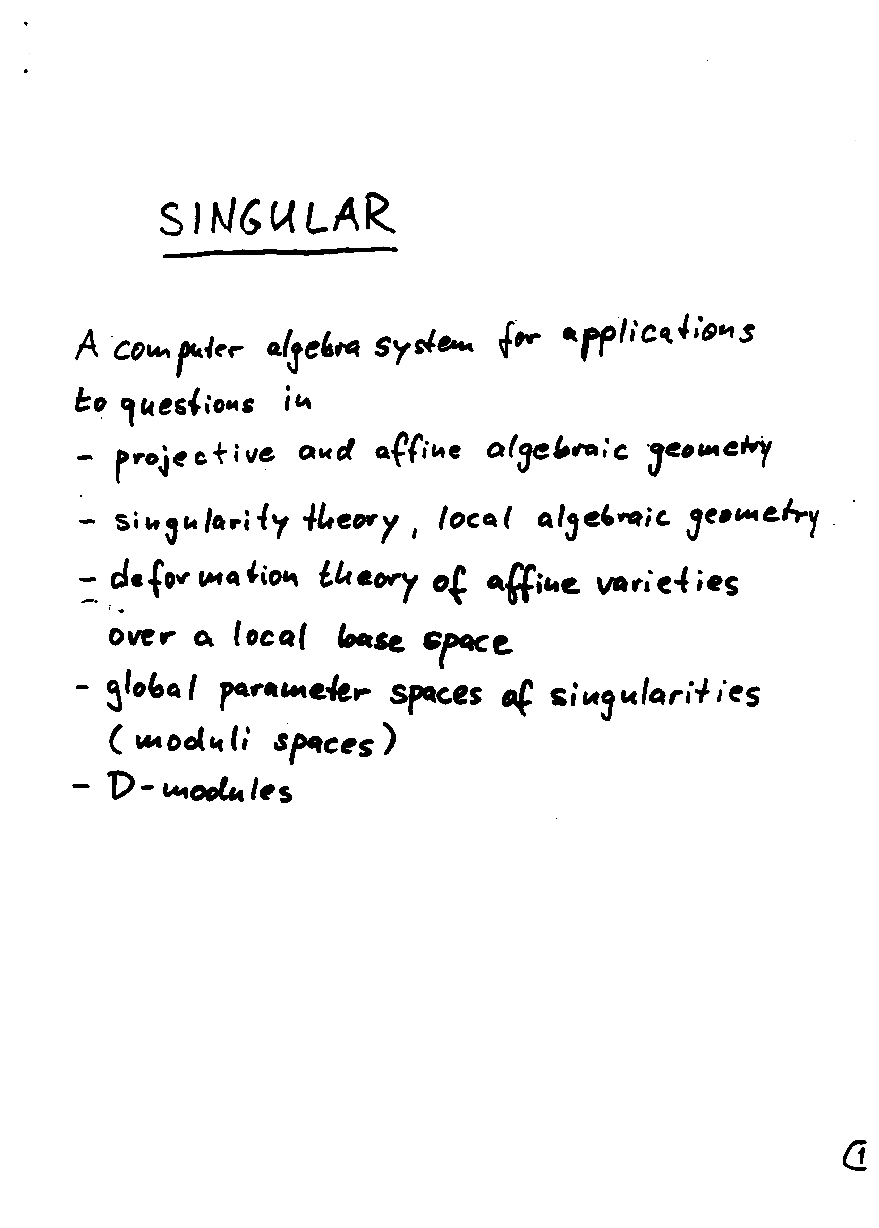 SINGULAR
A computer algebra system for applications
to questions in
- projective and affine algebraic geometry
- singularity theory, local algebraic geometry
- deformation theory of affine varieties
over a local base space
- global parameter spaces of singularities
(moduli spaces)
- D-modules
1